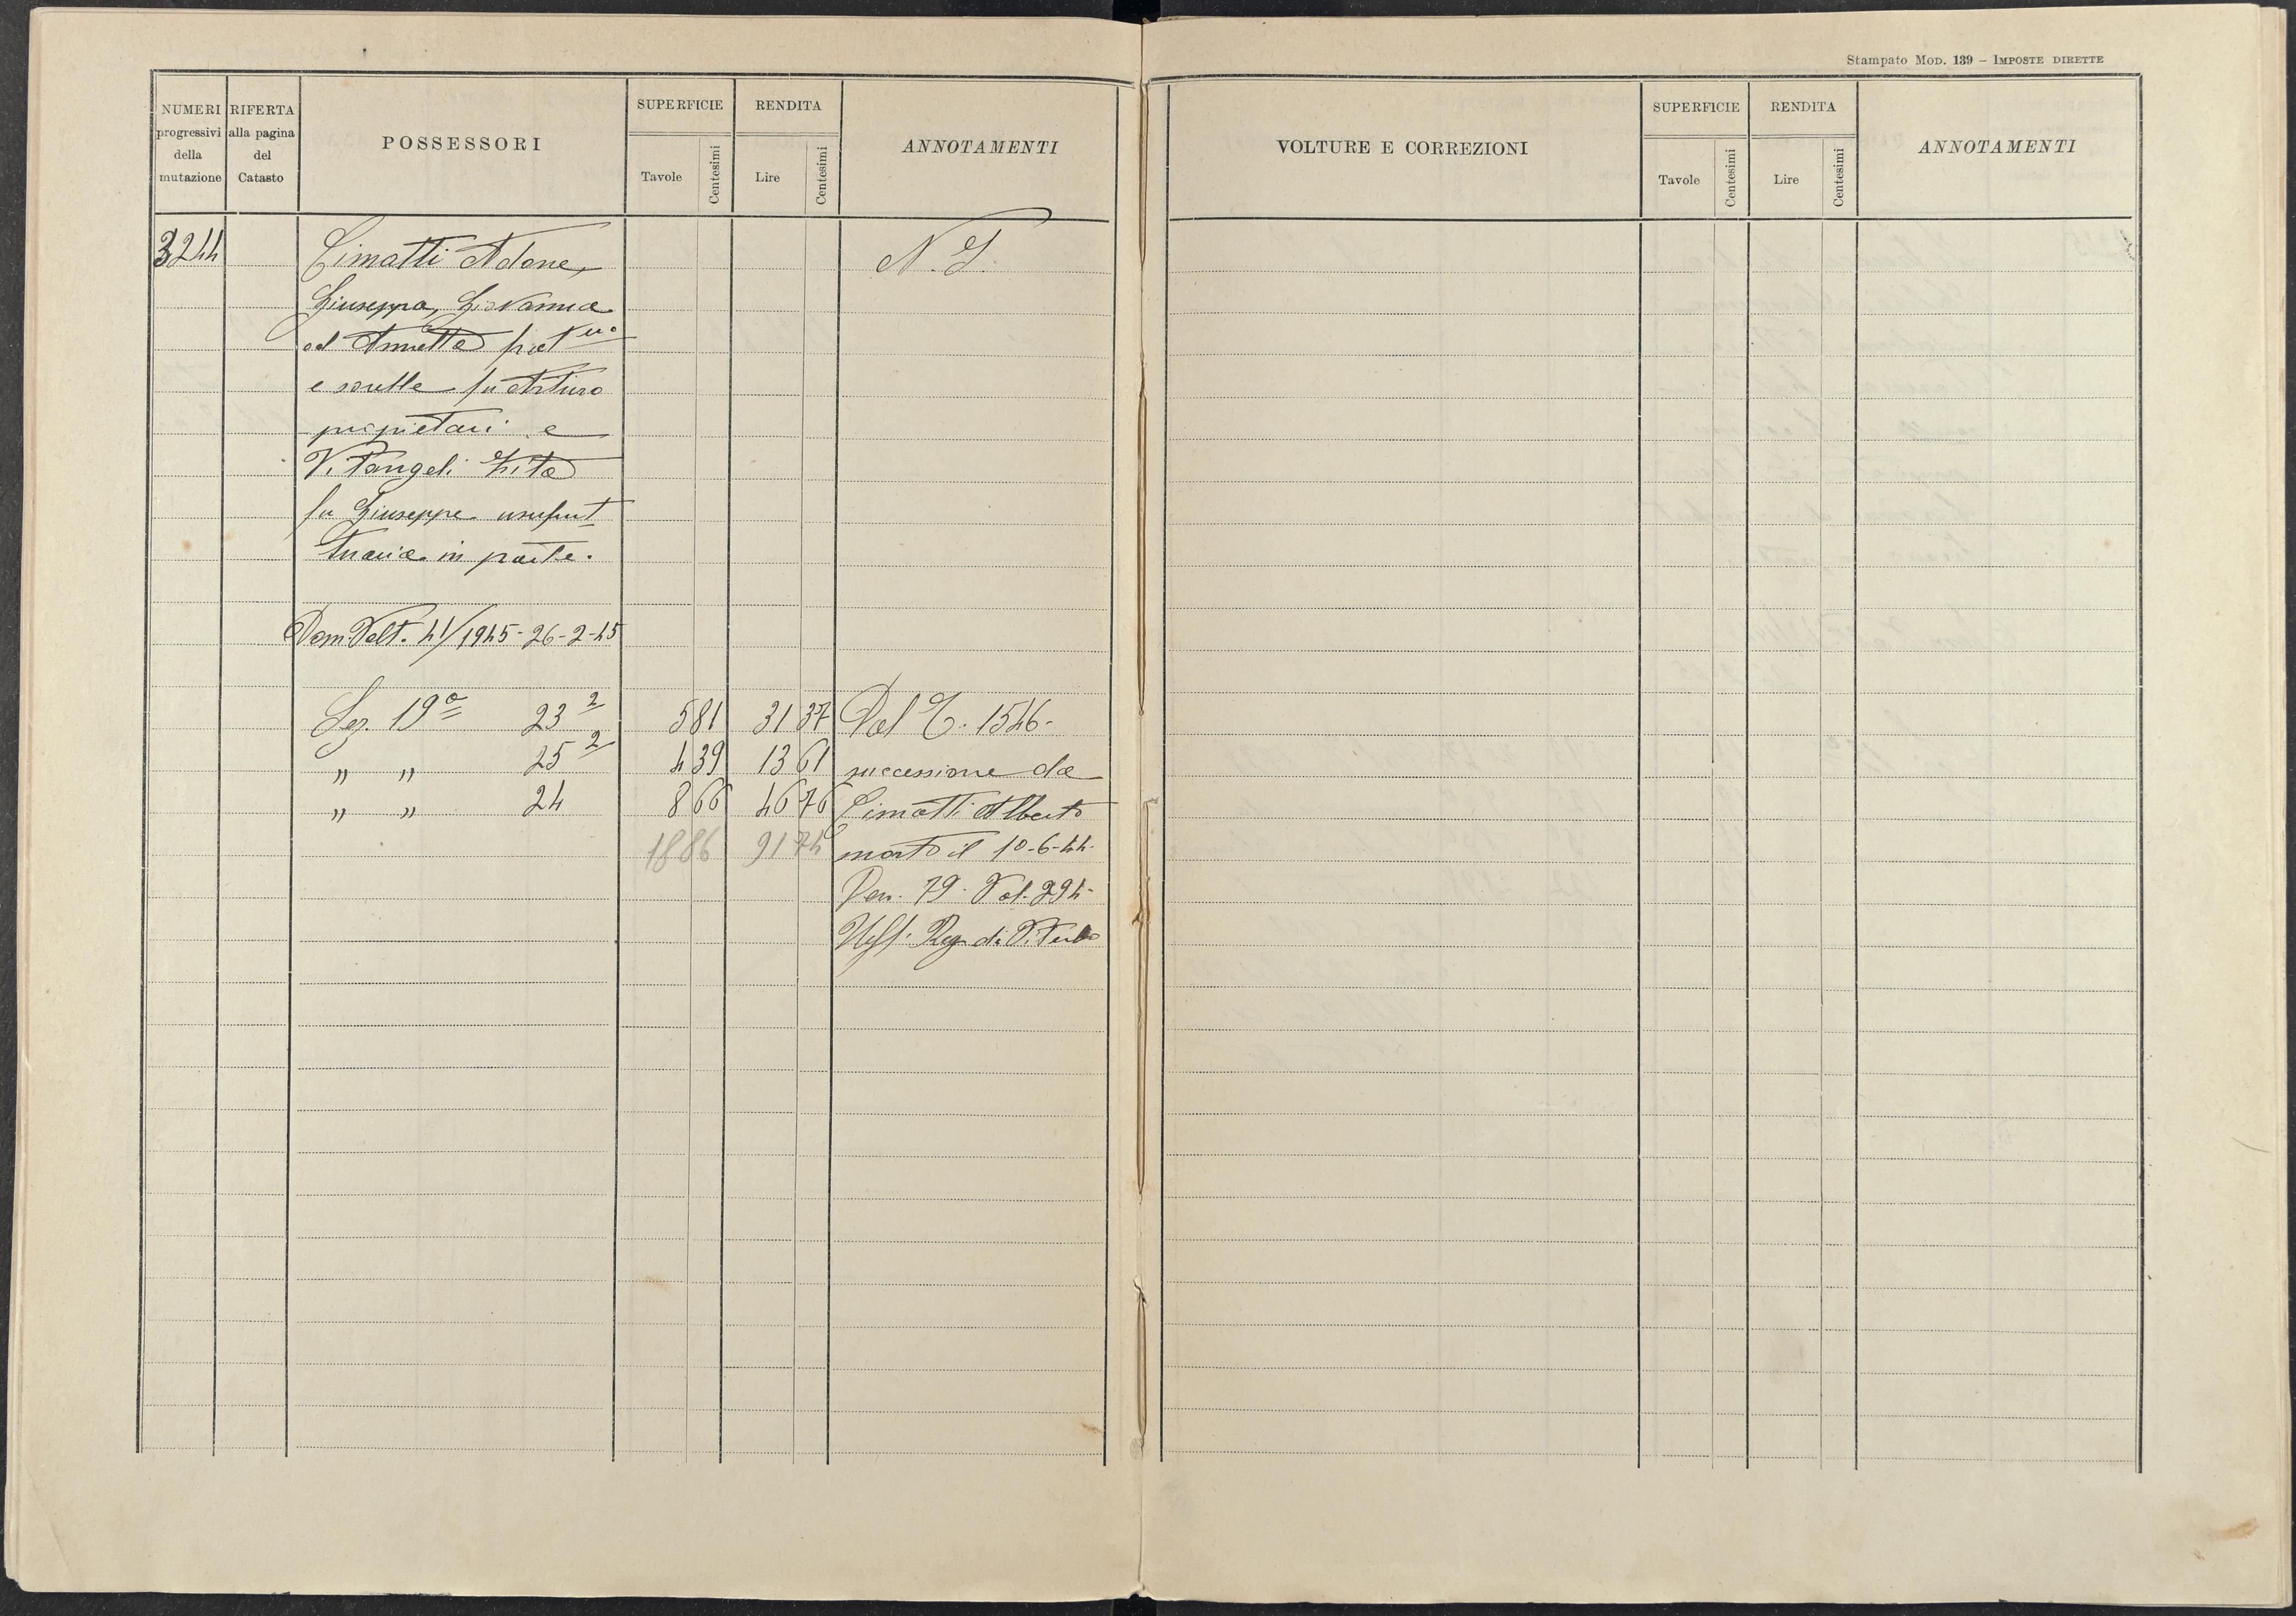 Stampato MOD. 139 – IMPOSTE DIRETTE
NUMERI progressivi della mutazione
RIFERTA alla pagina del Catasto
POSSESSORI
SUPERFICIE
Tavole
Centesimi
RENDITA
Lire
Centesimi
ANNOTAMENTI
VOLTURE E CORREZIONI
SUPERFICIE
Tavole
Centesimi
RENDITA
Lire
Centesimi
ANNOTAMENTI
3244 Cimatti Adone, N. I.
Giuseppa, Giovanna
ed Annetta frat
e sorelle fu Arturo
proprietari e
Vitangeli Zita
fu Giuseppe usufrut
tuaria in parte.
Dom. Volt. 41/1945 - 26-2-45
Sez. 19ª 23 2 5 81 31 37 Dal C. 1546-
" " 25 2 4 39 13 61 successione da
" " 24 8 66 46 76 Cimatti Alberto
18 86 91 74 morto il 10-6-44-
Den. 79 - Vol. 294-
Uff. Reg. di Viterbo